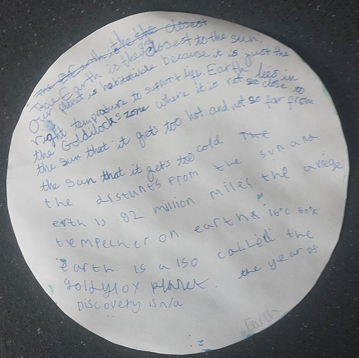 Earth is the closest
The Earth is the closest to the sun.
Our planet is habitable because it is just the
right temperature to support life. Earth lies in
the Goldilocks zone where it is not so close to
the sun that it gets too hot and not so far from
the sun that it gets too cold The
the distants from the sun and
erth is 92 million miles the
tempethcer on earth 16°c
earth is a lso called the
goldylox planet. the year of
Discovery is n/a
Earth